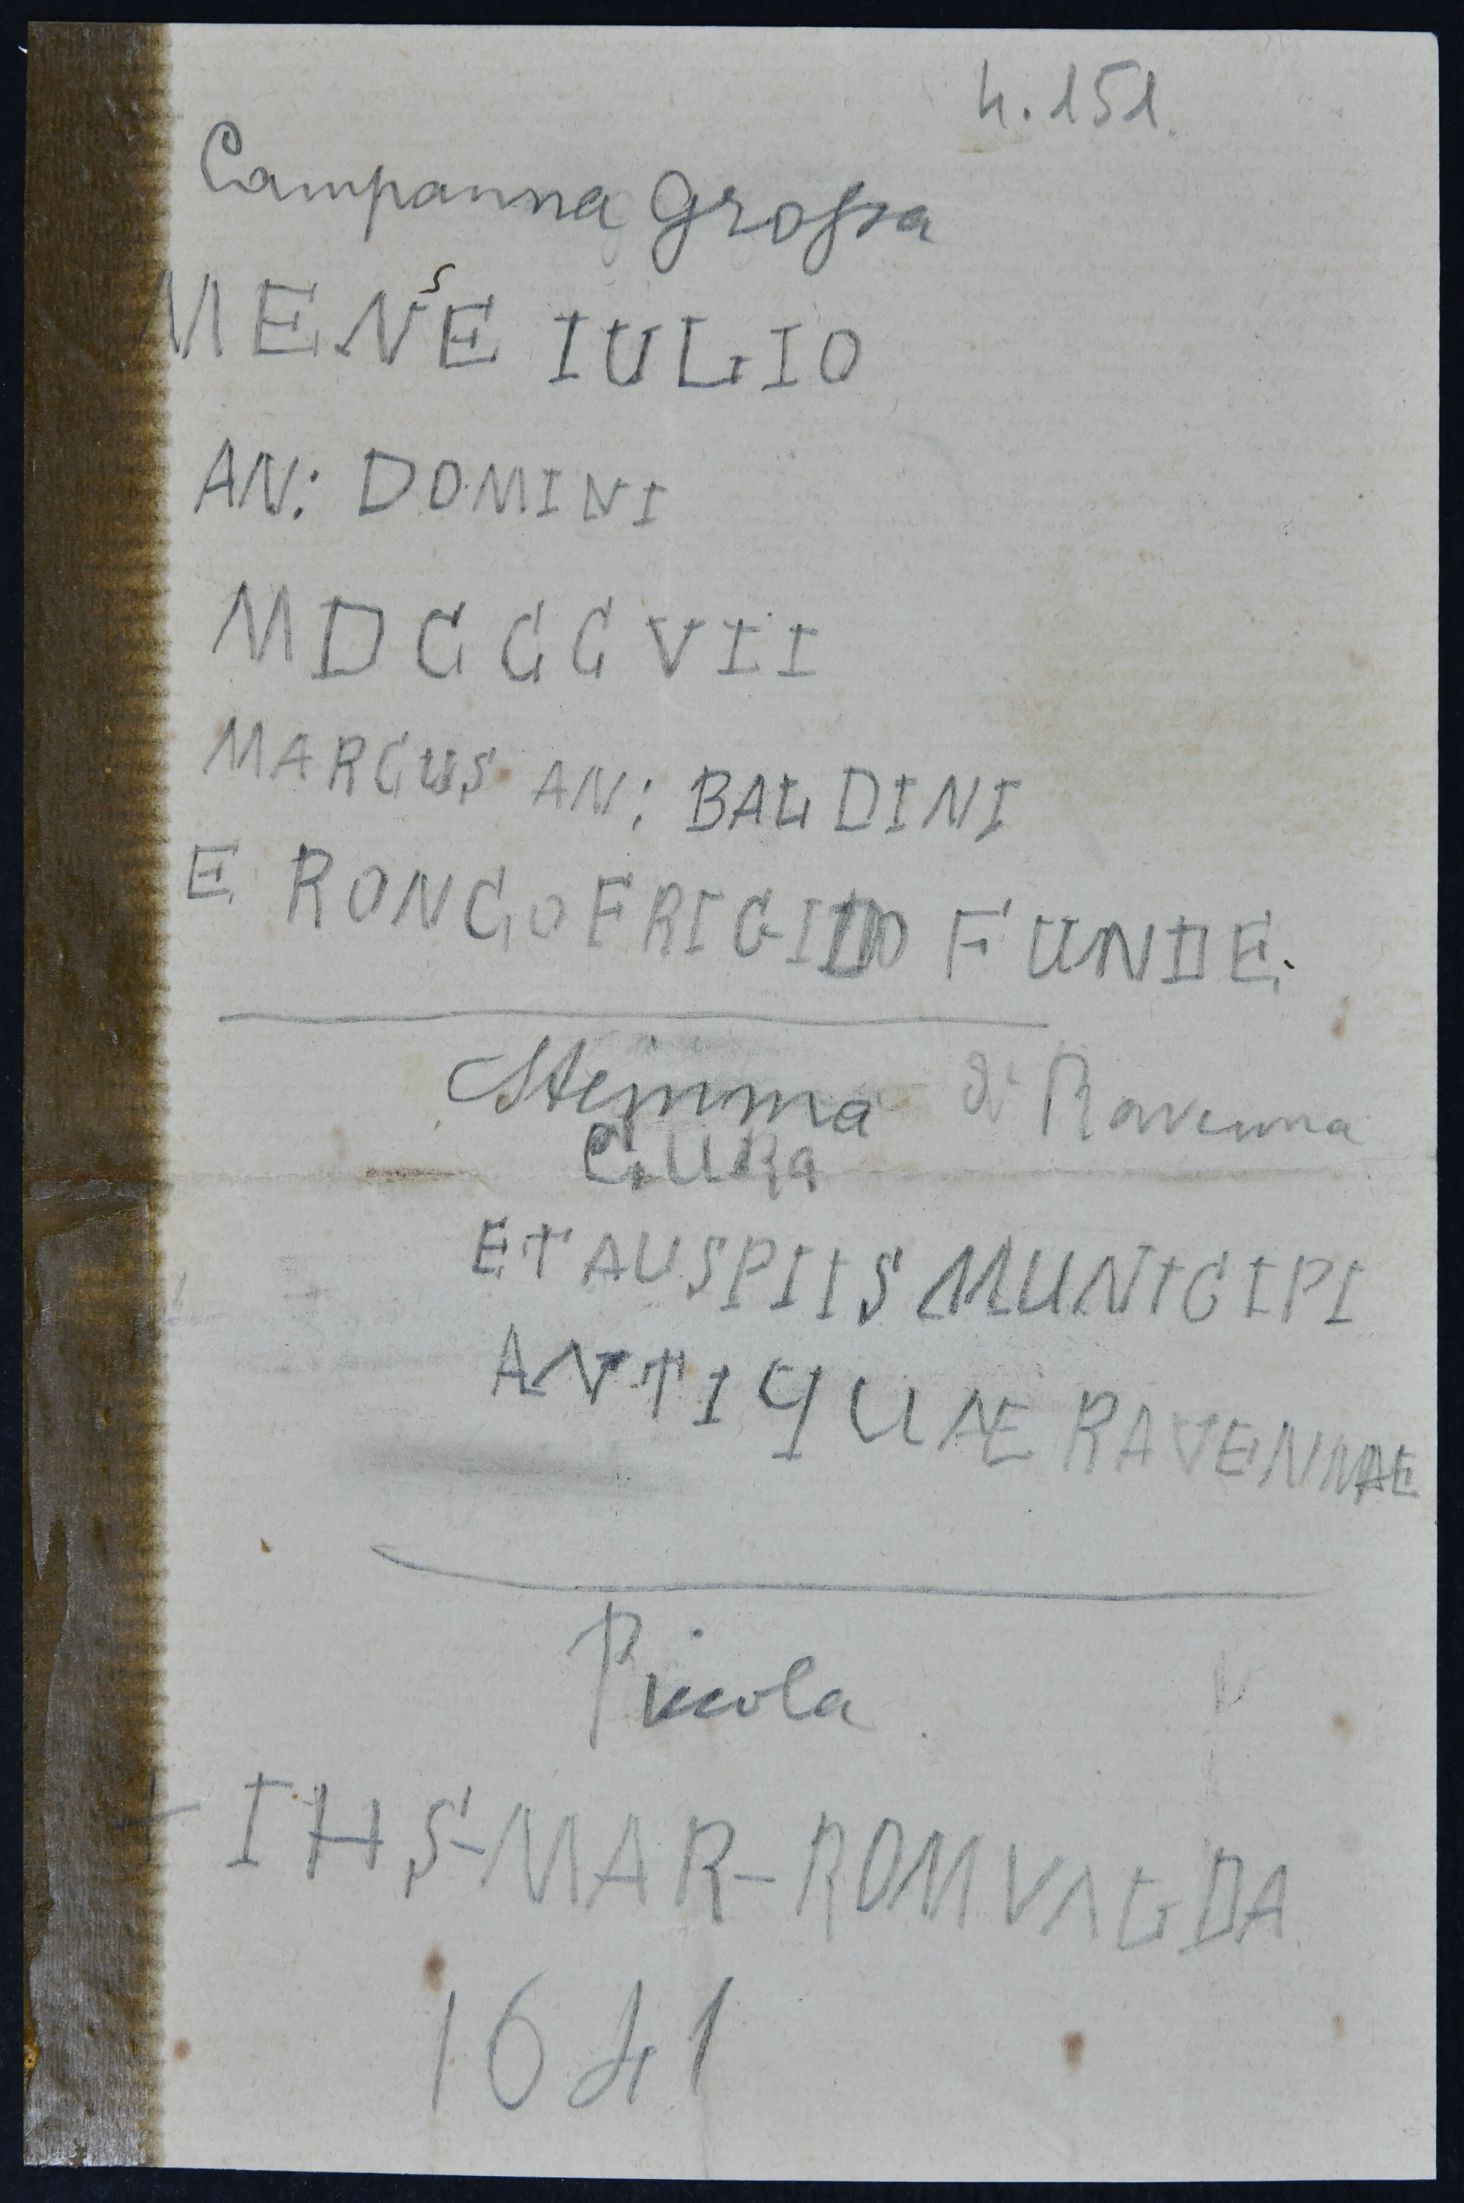 n. 151.
Campanna Grossa
MENSE IULIO
AN: DOMINI
MDCCCVII
MARCUS AN: BALDINI
E RONCOFRIGIDO FUNDE.
Stemma di Ravenna
CURa
ET AUSPIIS MUNICIPI
ANTIQUAE RAVENNAE
Piccola
+ IHS-MAR-ROMVALDA
1641